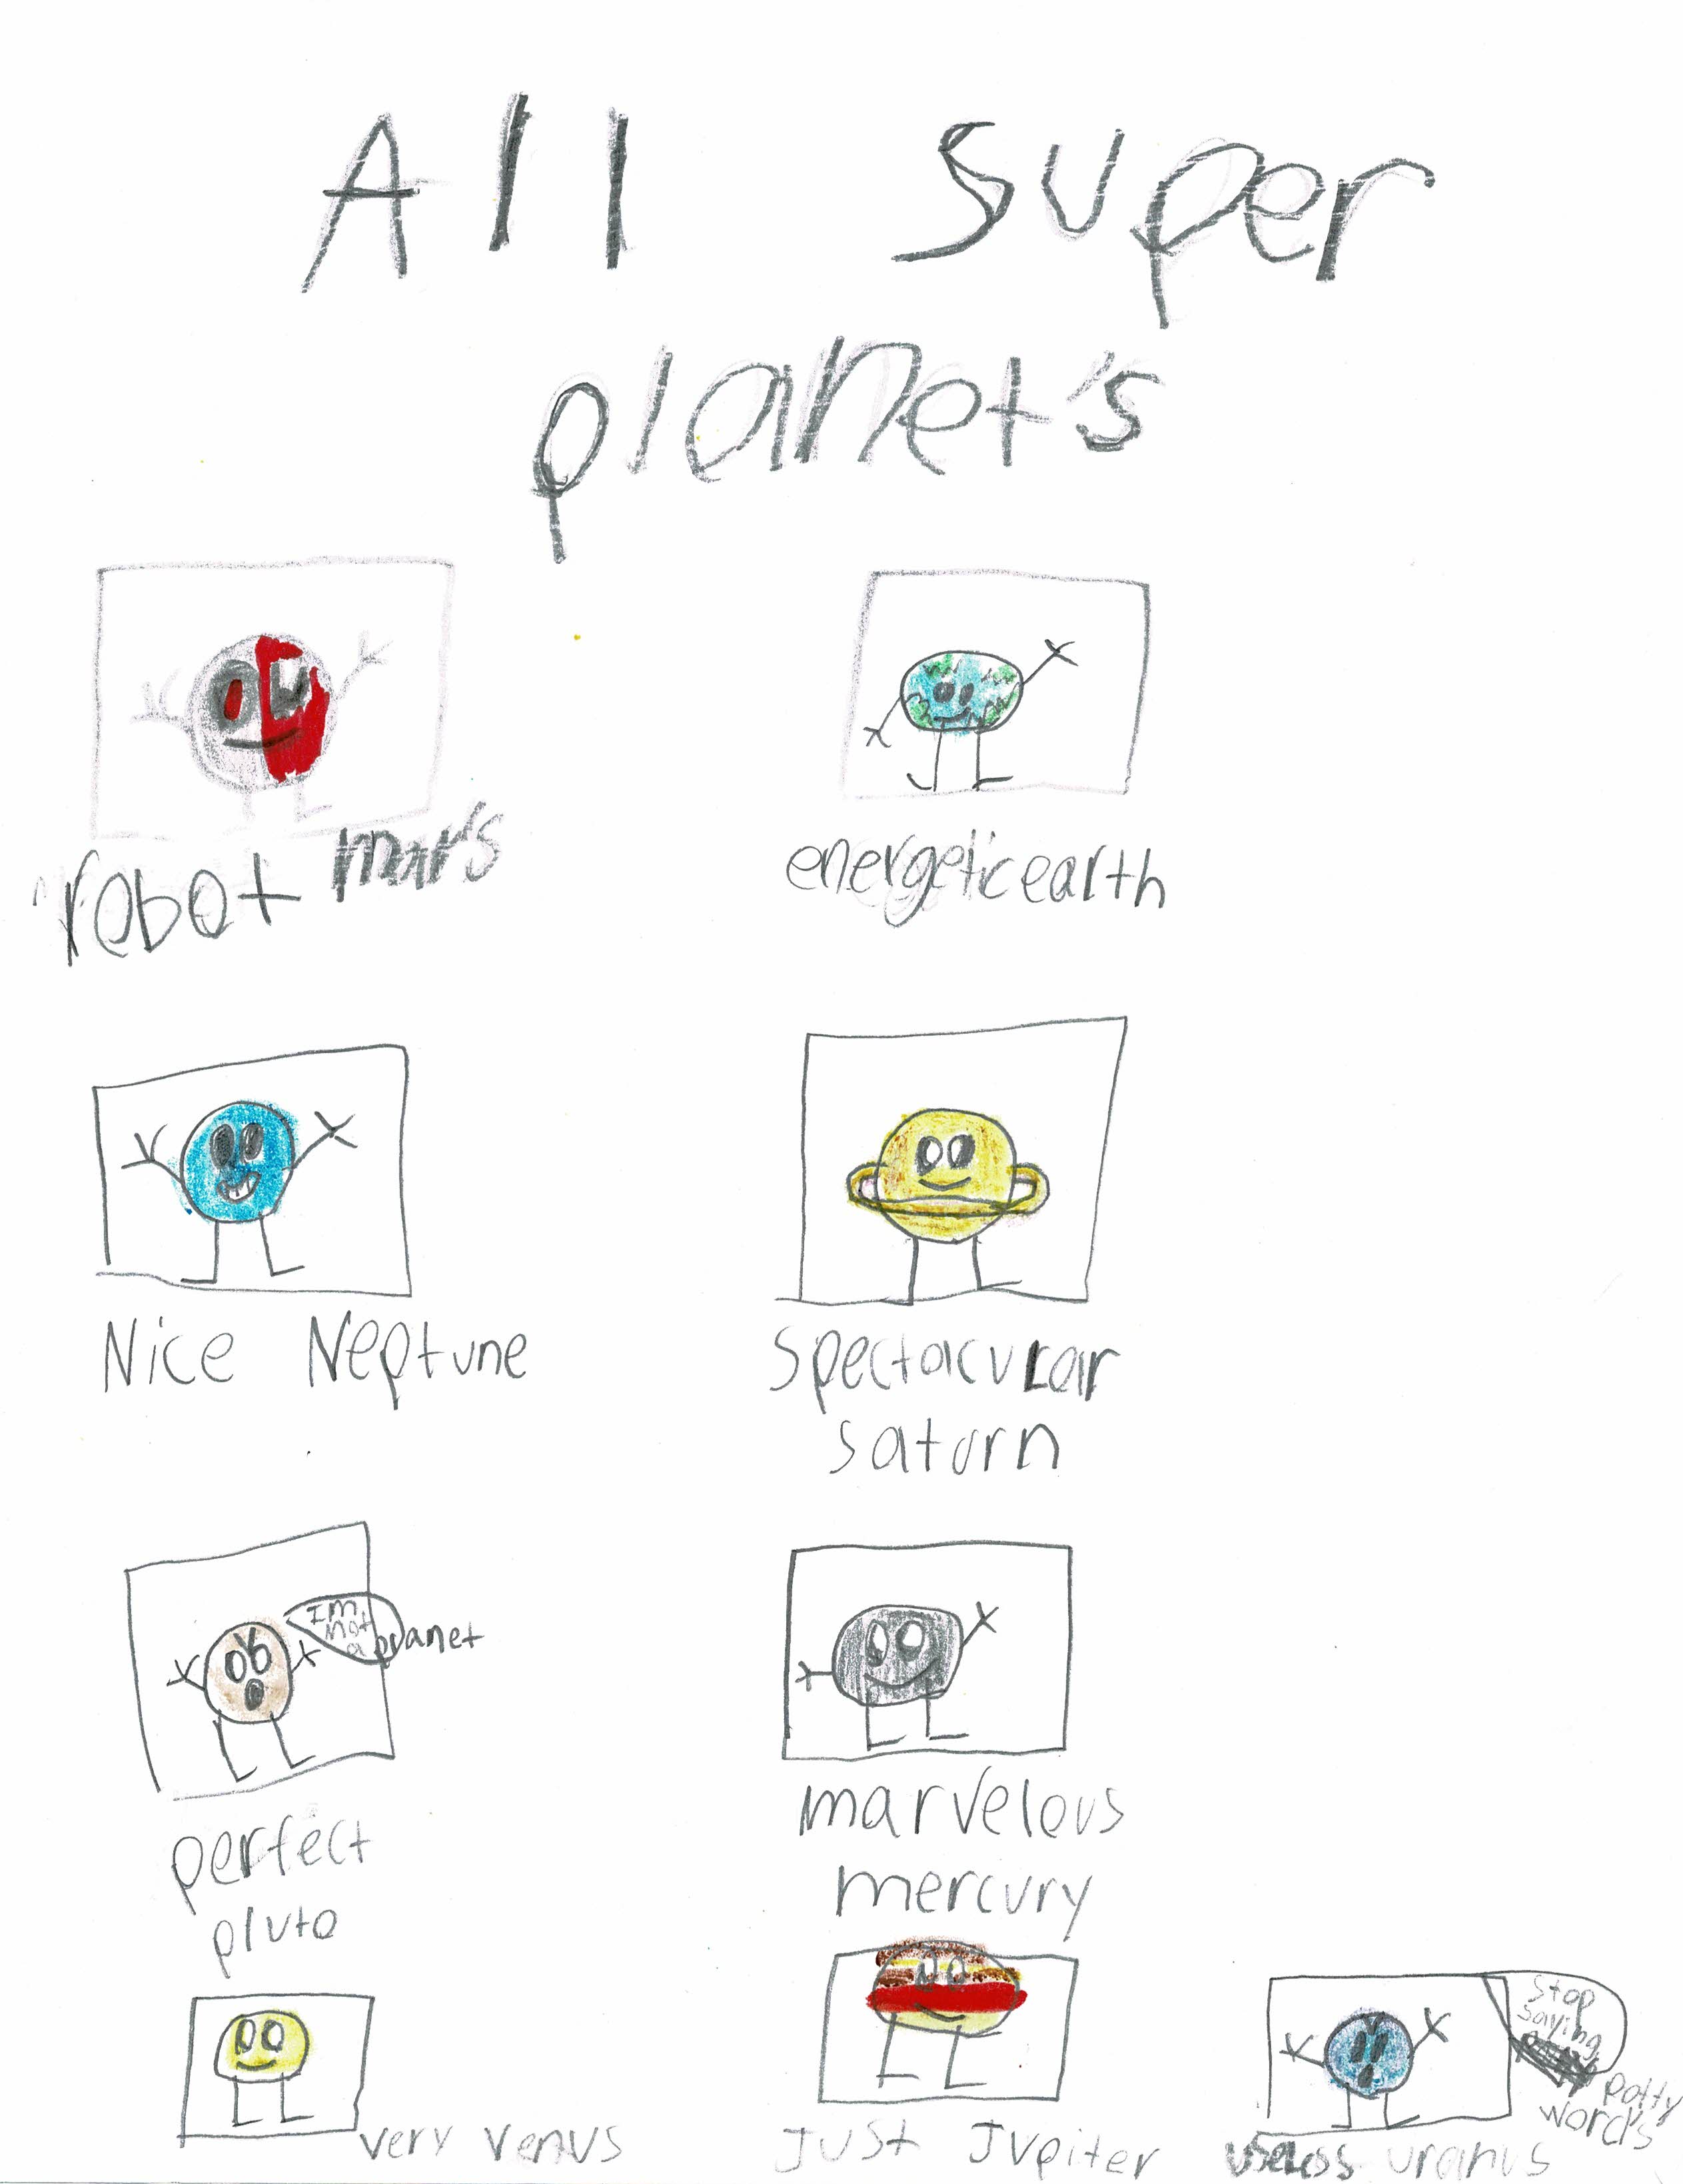 All super
planet's
robot mars
energetic earth
Nice Neptune
Spectacular
saturn
Im
not
a planet
perfect
pluto
marvelous
mercury
very venus
Just Jupiter
Stop
saying
potty
word's
uranus